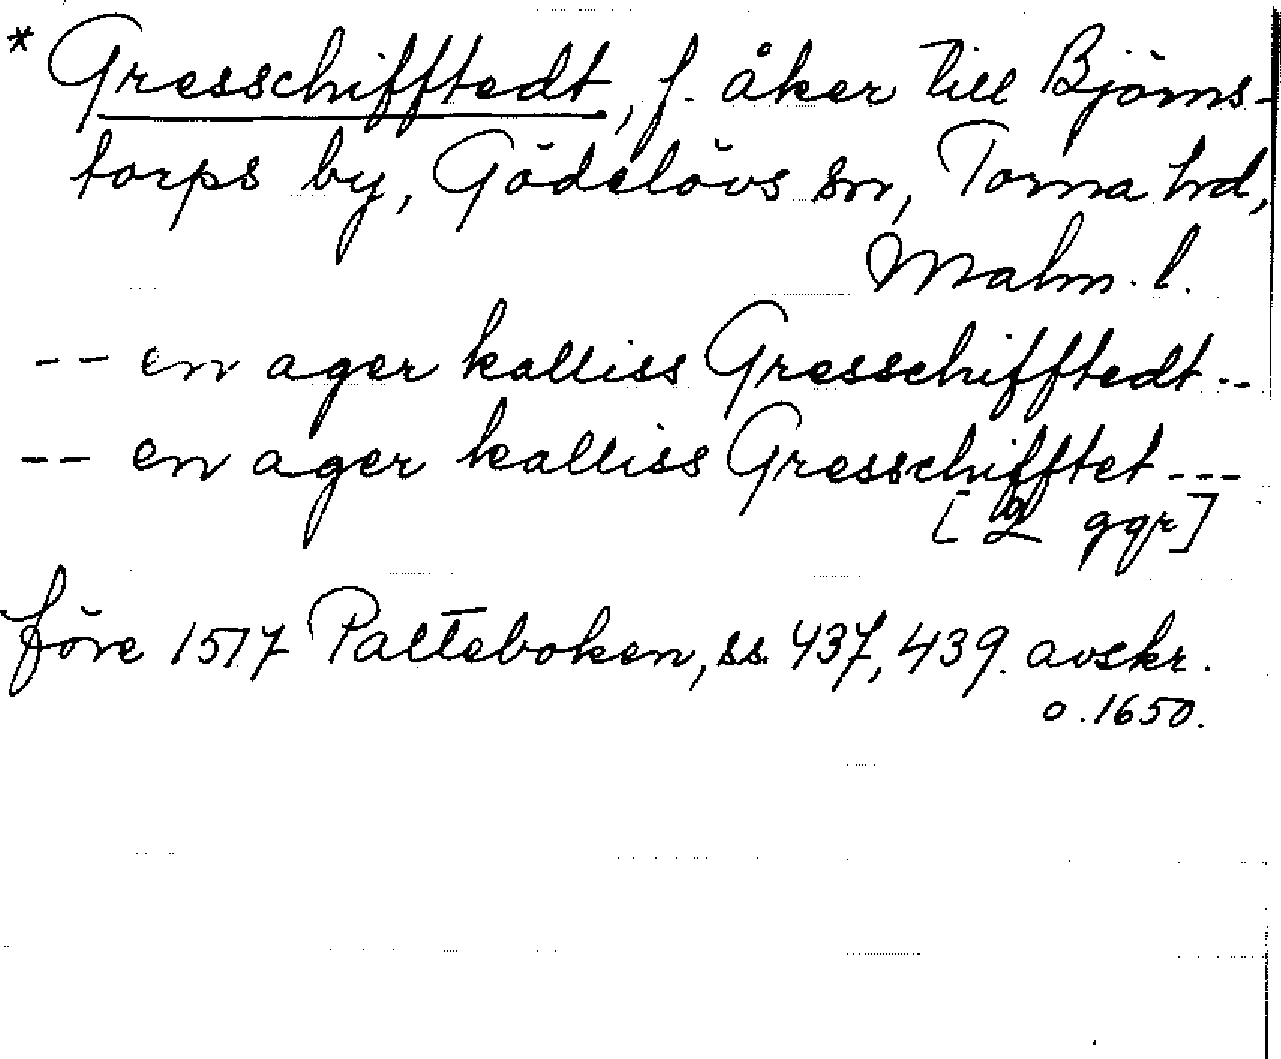 * Gresschifftedt, f. åker till Björns-
torps by, Gödelövs sn, Torna hd,
Malm. l.
-- en ager kalliss Gresschifftedt --
-- en ager kalliss Gresschifftet ---
[2 ggr]
före 1517 Palteboken, ss. 437, 439. avskr.
o. 1650.